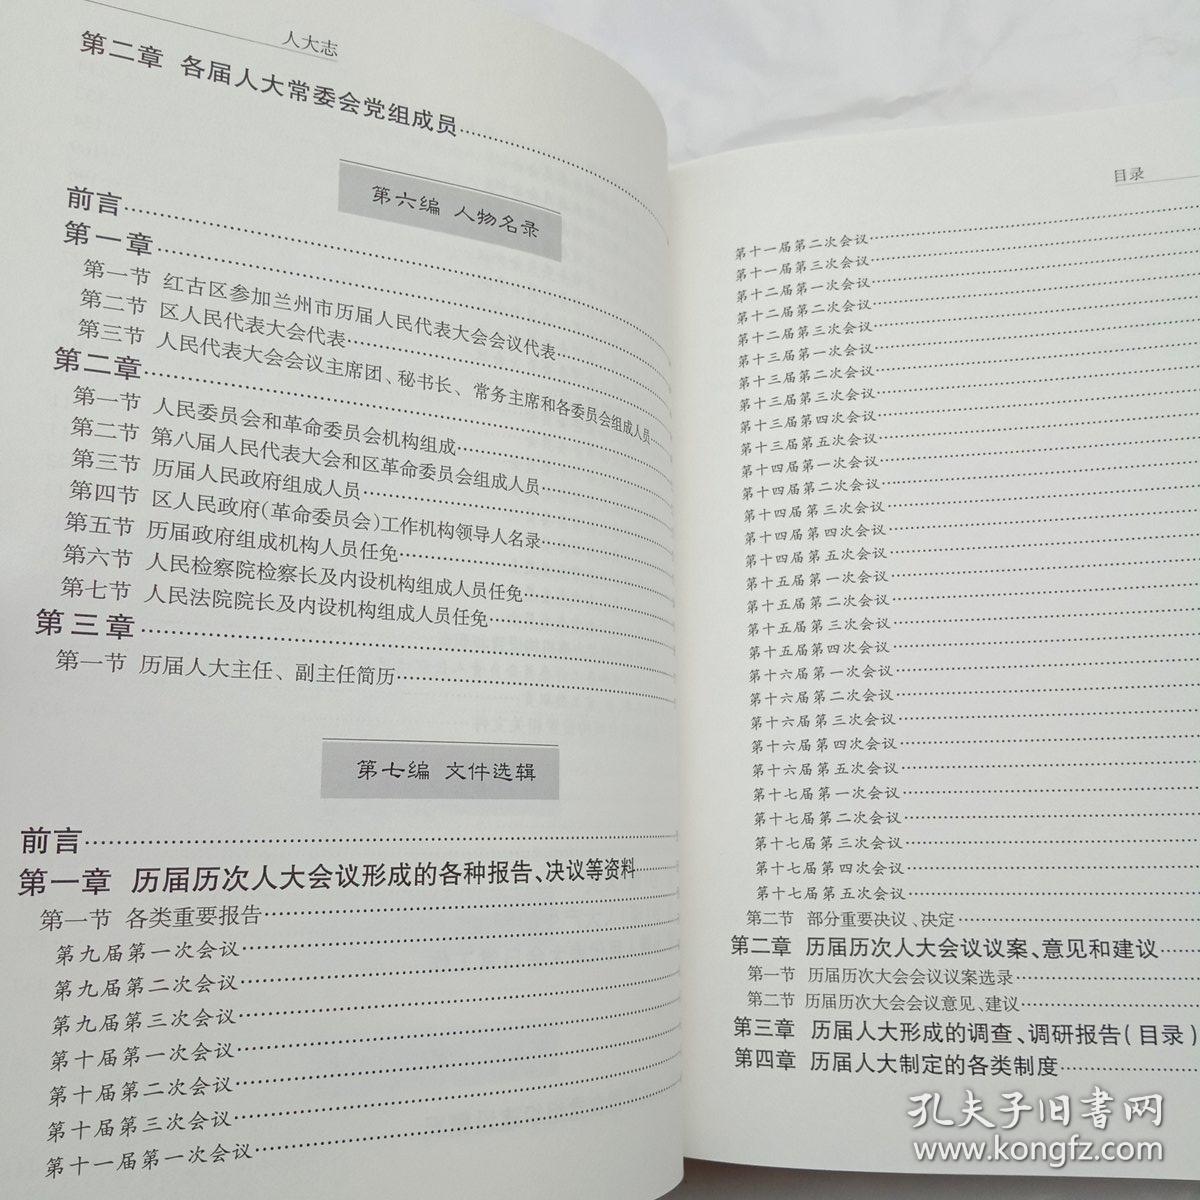 人大志
第二章 各届人大常委会党组成员
第六编 人物名录
前言
第一章
第一节 红古区参加兰州市历届人民代表大会会议代表
第二节 区人民代表大会代表
第三节 人民代表大会会议主席团、秘书长、常务主席和各委员会组成人员
第二章
第一节 人民委员会和革命委员会机构组成
第二节 第八届人民代表大会和区革命委员会组成人员
第三节 历届人民政府组成人员
第四节 区人民政府(革命委员会)工作机构领导人名录
第五节 历届政府组成机构人员任免
第六节 人民检察院检察长及内设机构组成人员任免
第七节 人民法院院长及内设机构组成人员任免
第三章
第一节 历届人大主任、副主任简历
第七编 文件选辑
前言
第一章 历届历次人大会议形成的各种报告、决议等资料
第一节 各类重要报告
第九届第一次会议
第九届第二次会议
第九届第三次会议
第十届第一次会议
第十届第二次会议
第十届第三次会议
第十一届第一次会议
目录
第十一届第二次会议
第十一届第三次会议
第十二届第一次会议
第十二届第二次会议
第十二届第三次会议
第十三届第一次会议
第十三届第二次会议
第十三届第三次会议
第十三届第四次会议
第十三届第五次会议
第十四届第一次会议
第十四届第二次会议
第十四届第三次会议
第十四届第四次会议
第十四届第五次会议
第十五届第一次会议
第十五届第二次会议
第十五届第三次会议
第十五届第四次会议
第十六届第一次会议
第十六届第二次会议
第十六届第三次会议
第十六届第四次会议
第十六届第五次会议
第十七届第一次会议
第十七届第二次会议
第十七届第三次会议
第十七届第四次会议
第十七届第五次会议
第二节 部分重要决议、决定
第二章 历届历次人大会议议案、意见和建议
第一节 历届历次大会会议议案选录
第二节 历届历次大会会议意见、建议
第三章 历届人大形成的调查、调研报告(目录)
第四章 历届人大制定的各类制度
孔夫子旧书网
www.kongfz.com